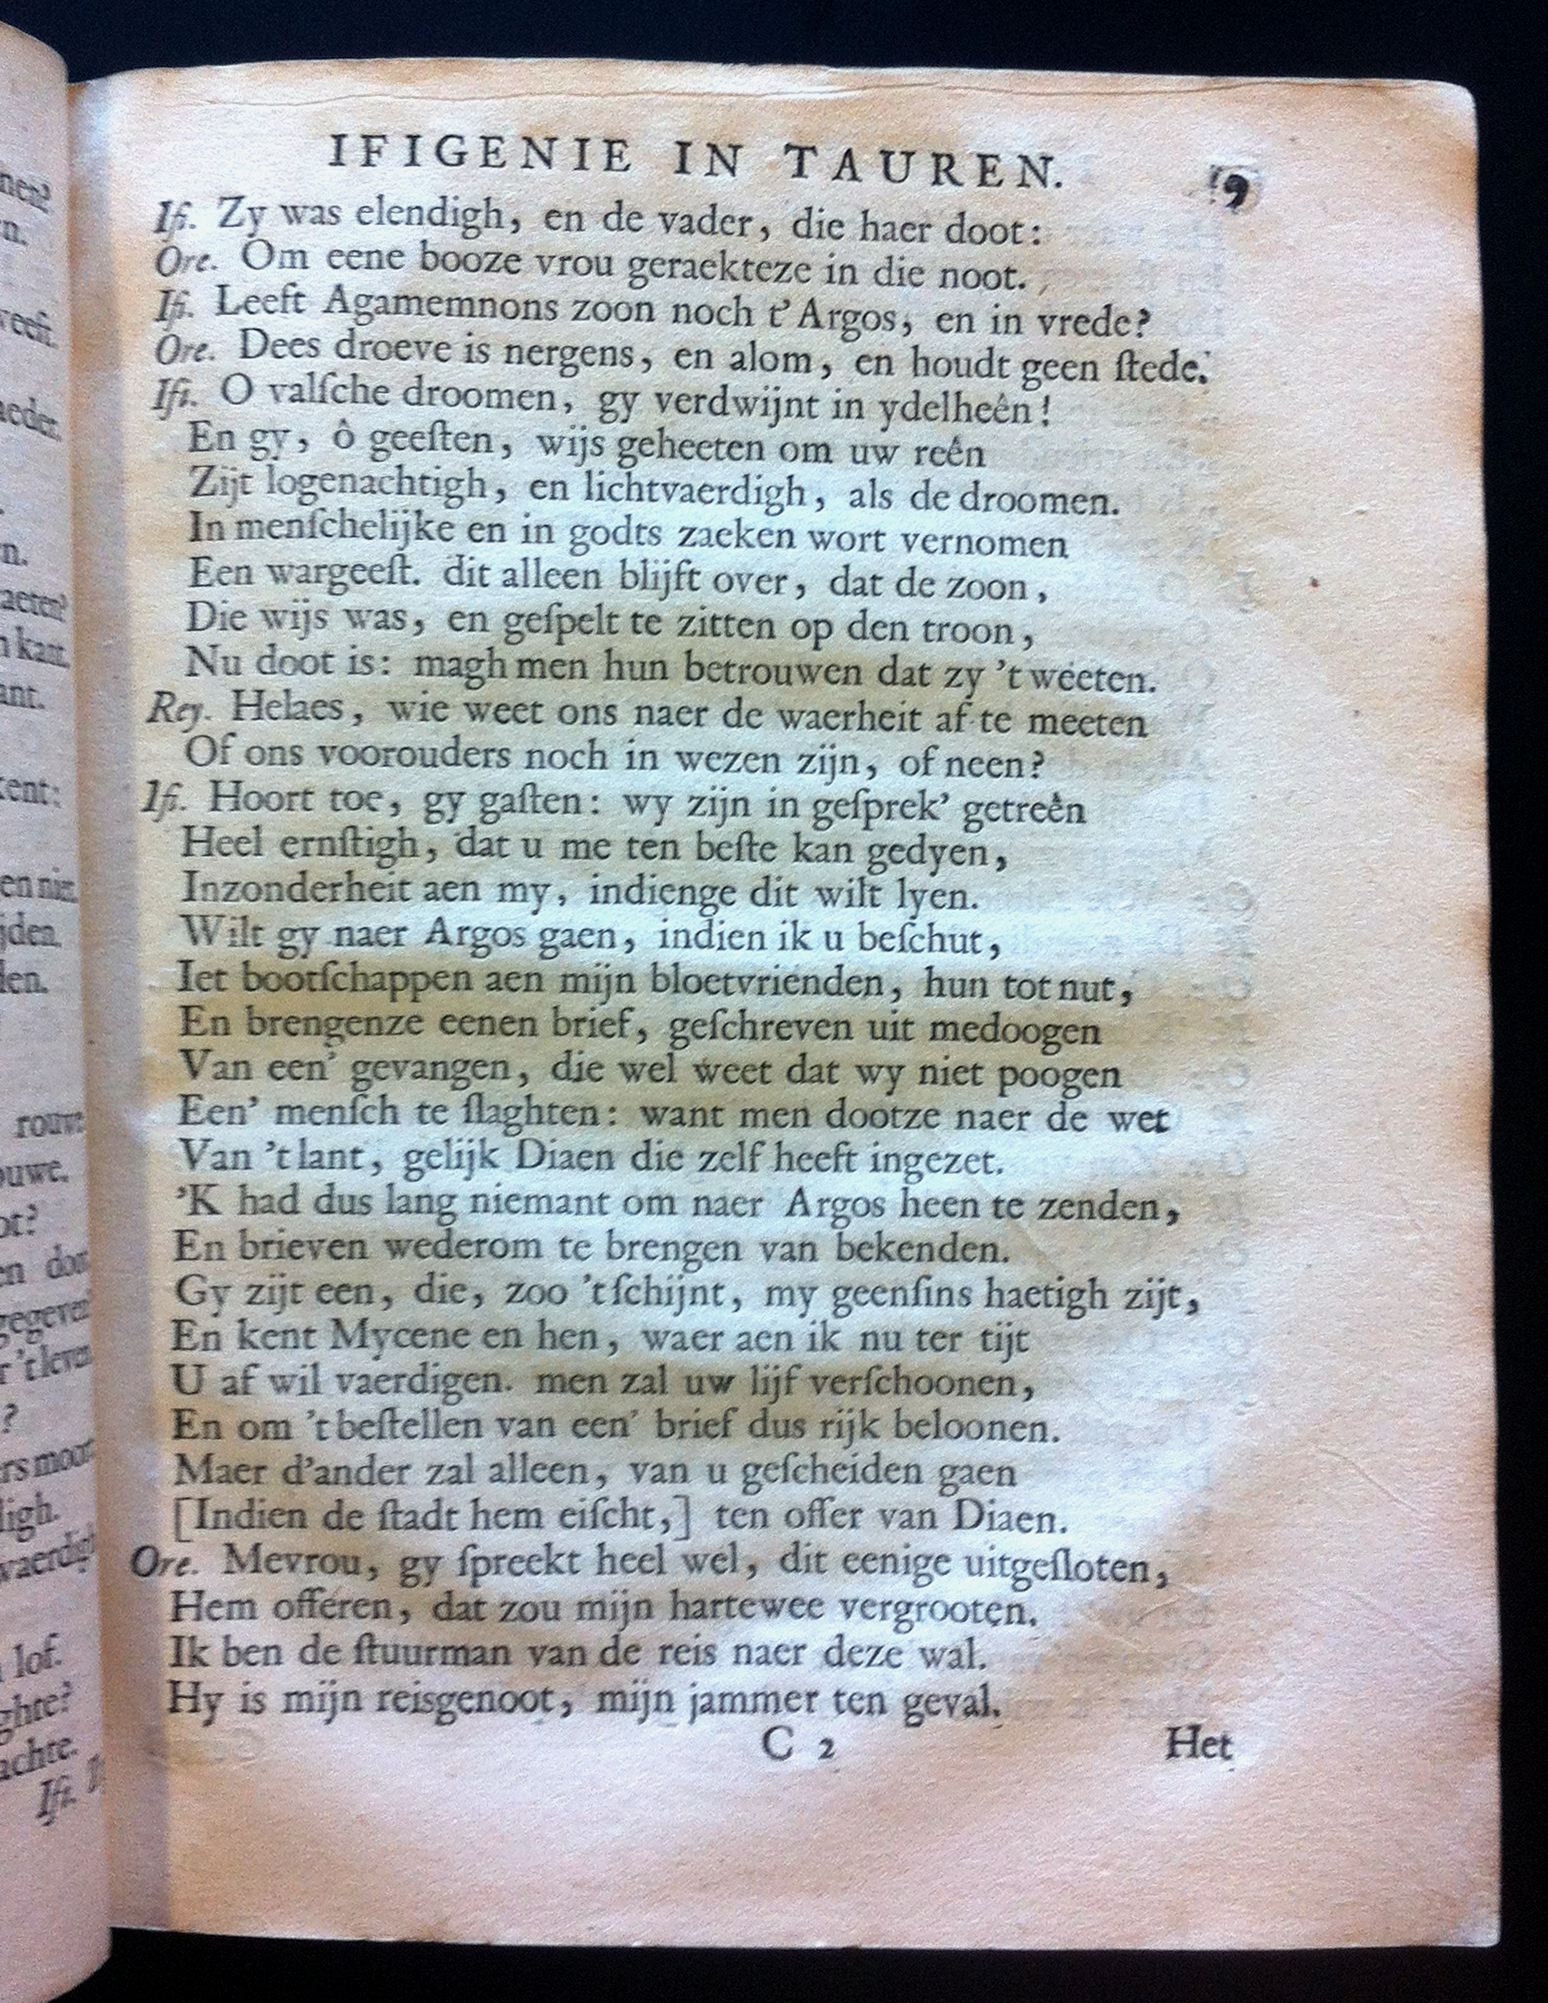 IFIGENIE IN TAUREN. 19
Ifi. Zy was elendigh, en de vader, die haer doot:
Ore. Om eene booze vrou geraekteze in die noot.
Ifi. Leeft Agamemnons zoon noch t'Argos, en in vrede?
Ore. Dees droeve is nergens, en alom, en houdt geen ſtede.
Ifi. O valſche droomen, gy verdwijnt in ydelheên!
En gy, ô geeſten, wijs geheeten om uw reên
Zijt logenachtigh, en lichtvaerdigh, als de droomen.
In menſchelijke en in godts zaeken wort vernomen
Een wargeeſt. dit alleen blijft over, dat de zoon,
Die wijs was, en geſpelt te zitten op den troon,
Nu doot is: magh men hun betrouwen dat zy 't weeten.
Rey. Helaes, wie weet ons naer de waerheit af te meeten
Of ons voorouders noch in wezen zijn, of neen?
Ifi. Hoort toe, gy gaſten: wy zijn in geſprek' getreên
Heel ernſtigh, dat u me ten beſte kan gedyen,
Inzonderheit aen my, indienge dit wilt lyen.
Wilt gy naer Argos gaen, indien ik u beſchut,
Iet bootſchappen aen mijn bloetvrienden, hun tot nut,
En brengenze eenen brief, geſchreven uit medoogen
Van een' gevangen, die wel weet dat wy niet poogen
Een' menſch te ſlaghten: want men dootze naer de wet
Van 't lant, gelijk Diaen die zelf heeft ingezet.
'K had dus lang niemant om naer Argos heen te zenden,
En brieven wederom te brengen van bekenden.
Gy zijt een, die, zoo 't ſchijnt, my geenſins haetigh zijt,
En kent Mycene en hen, waer aen ik nu ter tijt
U af wil vaerdigen. men zal uw lijf verſchoonen,
En om 't beſtellen van een' brief dus rijk beloonen.
Maer d'ander zal alleen, van u geſcheiden gaen
[Indien de ſtadt hem eiſcht,] ten offer van Diaen.
Ore. Mevrou, gy ſpreekt heel wel, dit eenige uitgeſloten,
Hem offéren, dat zou mijn hartewee vergrooten.
Ik ben de ſtuurman van de reis naer deze wal.
Hy is mijn reisgenoot, mijn jammer ten geval.
C 2 Het